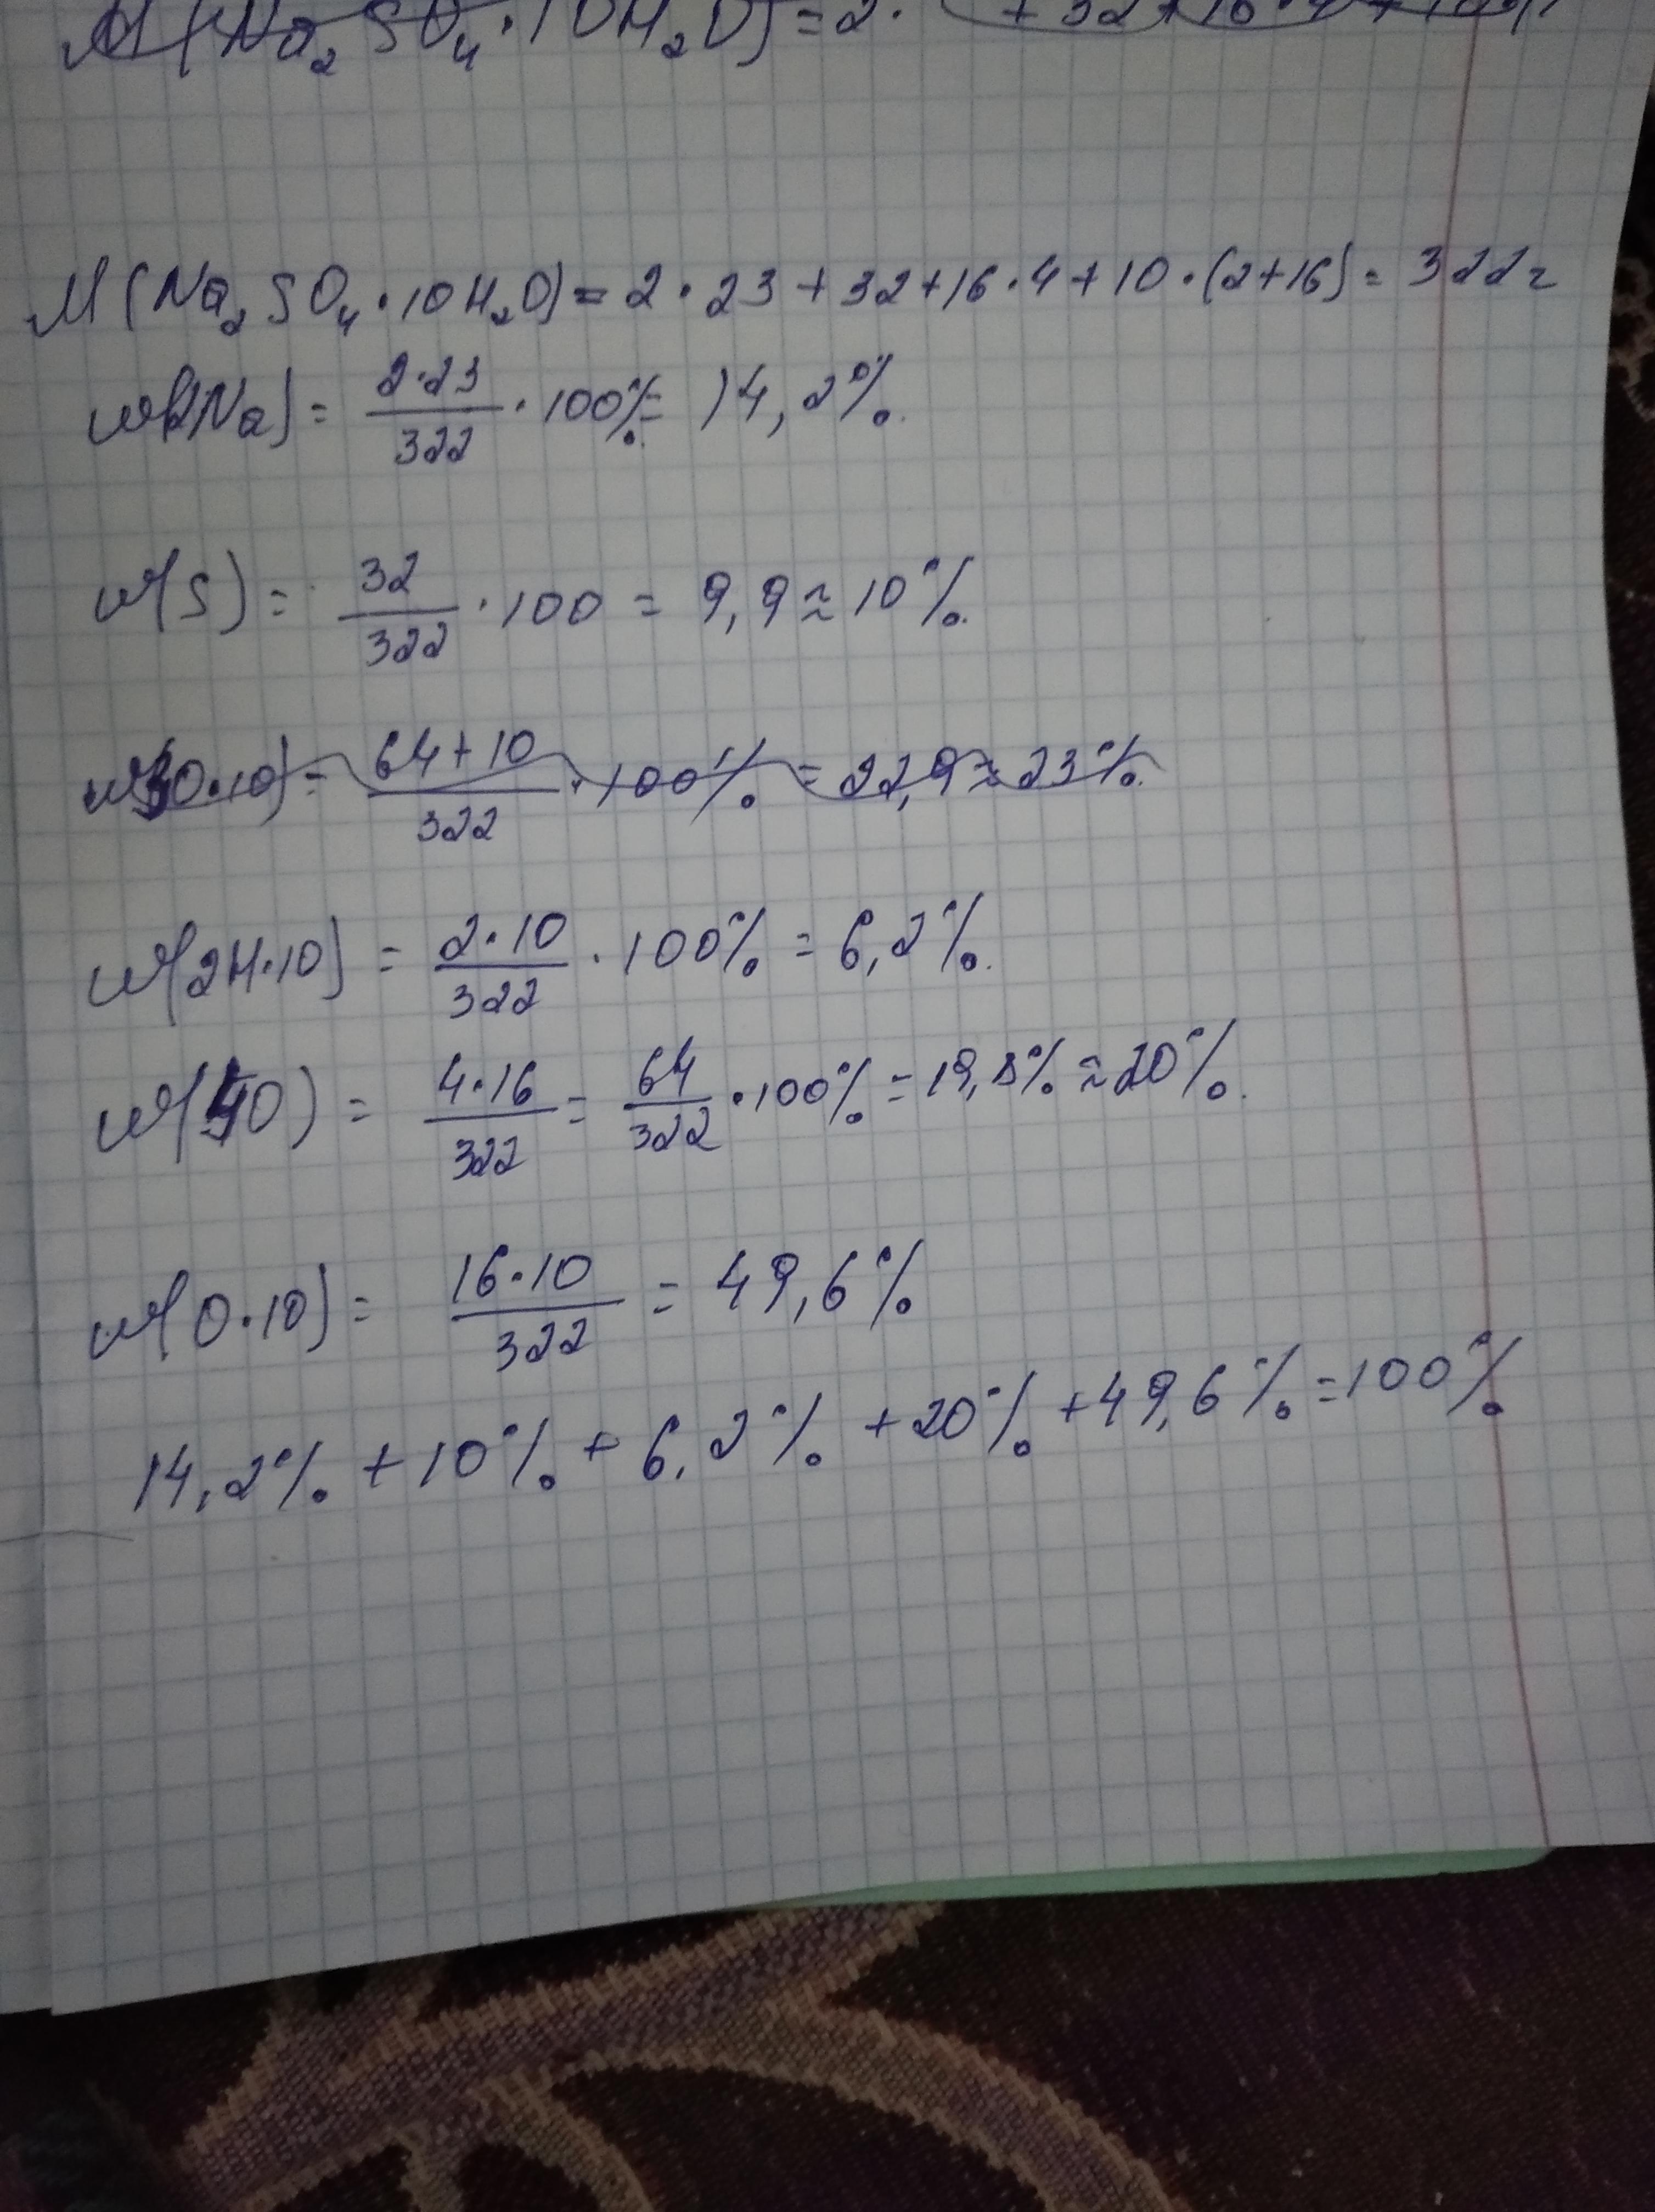 M(Na₂SO₄·10H₂O)=2· +32+16·4+
M(Na₂SO₄·10H₂O)=2·23+32+16·4+10·(2+16)=322г
w(2Na)=2·23/322·100%=14,2%.
w(S)=32/322·100=9,9≈10%.
w(30·10)=64+10/322·100%=22,9≈23%.
w(2H·10)=2·10/322·100%=6,2%.
w(4O)=4·16/322=64/322·100%=19,8%≈20%.
w(O·10)=16·10/322=49,6%
14,2%+10%+6,2%+20%+49,6%=100%